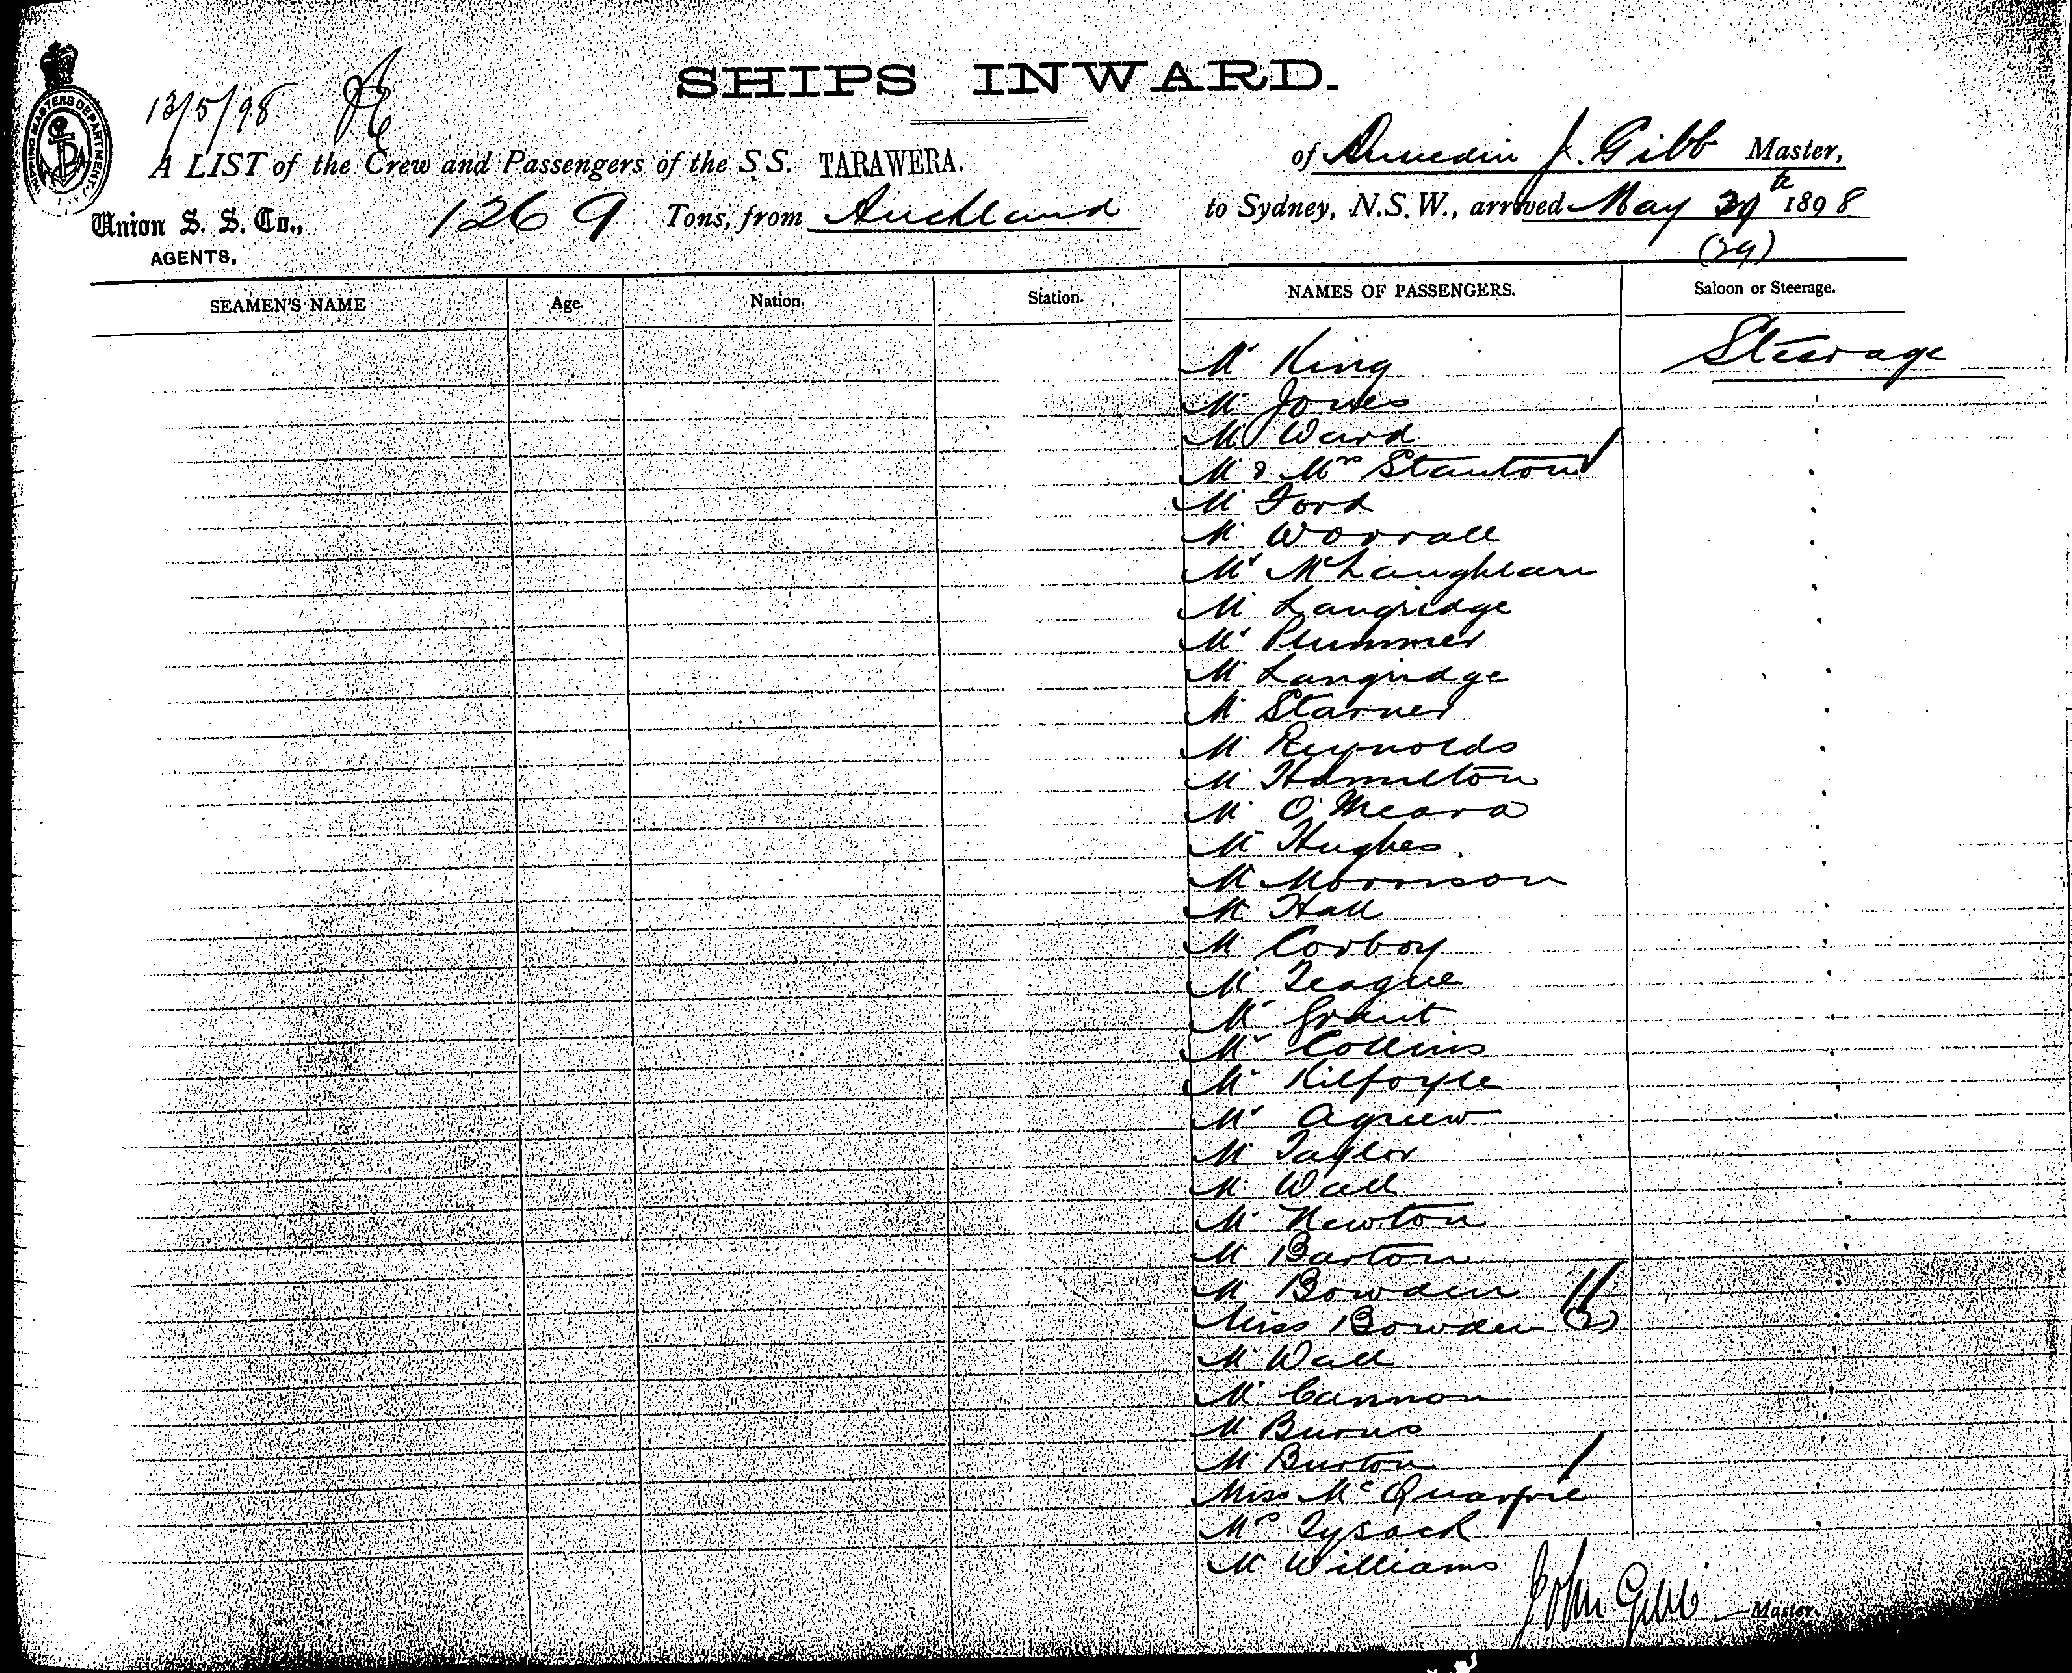 SHIPS INWARD.
13/5/98
SHIPPING MASTERS DEPARTMENT.
A LIST of the Crew and Passengers of the S.S. TARAWERA. of Dunedin J. Gibb Master,
Union S. S. Co., 1269 Tons, from Auckland to Sydney, N.S.W., arrived May 29th 1898
AGENTS, (29)
SEAMEN'S NAME Age. Nation. Station. NAMES OF PASSENGERS. Saloon or Steerage.
Mr King Steerage
Mr Jones
Mr Ward
Mr & Mrs Stanton
Mr Ford
Mr Worrall
Mr McLaughlan
Mr Langridge
Mr Plummer
Mr Langridge
Mr Starner
Mr Reynolds
Mr Hamilton
Mr O'Meara
Mr Hughes
Mr Morrison
Mr Hall
Mr Corboy
Mr Teague
Mr Grant
Mr Collins
Mr Kilfoyle
Mr Agnew
Mr Taylor
Mr Wall
Mr Newton
Mr Barton
Mr Bowden
Miss Bowden (2)
Mr Wall
Mr Cannon
Mr Burns
Mr Burton
Miss McQuarrie
Mrs Tysack
Mr Williams
John Gibb Master.